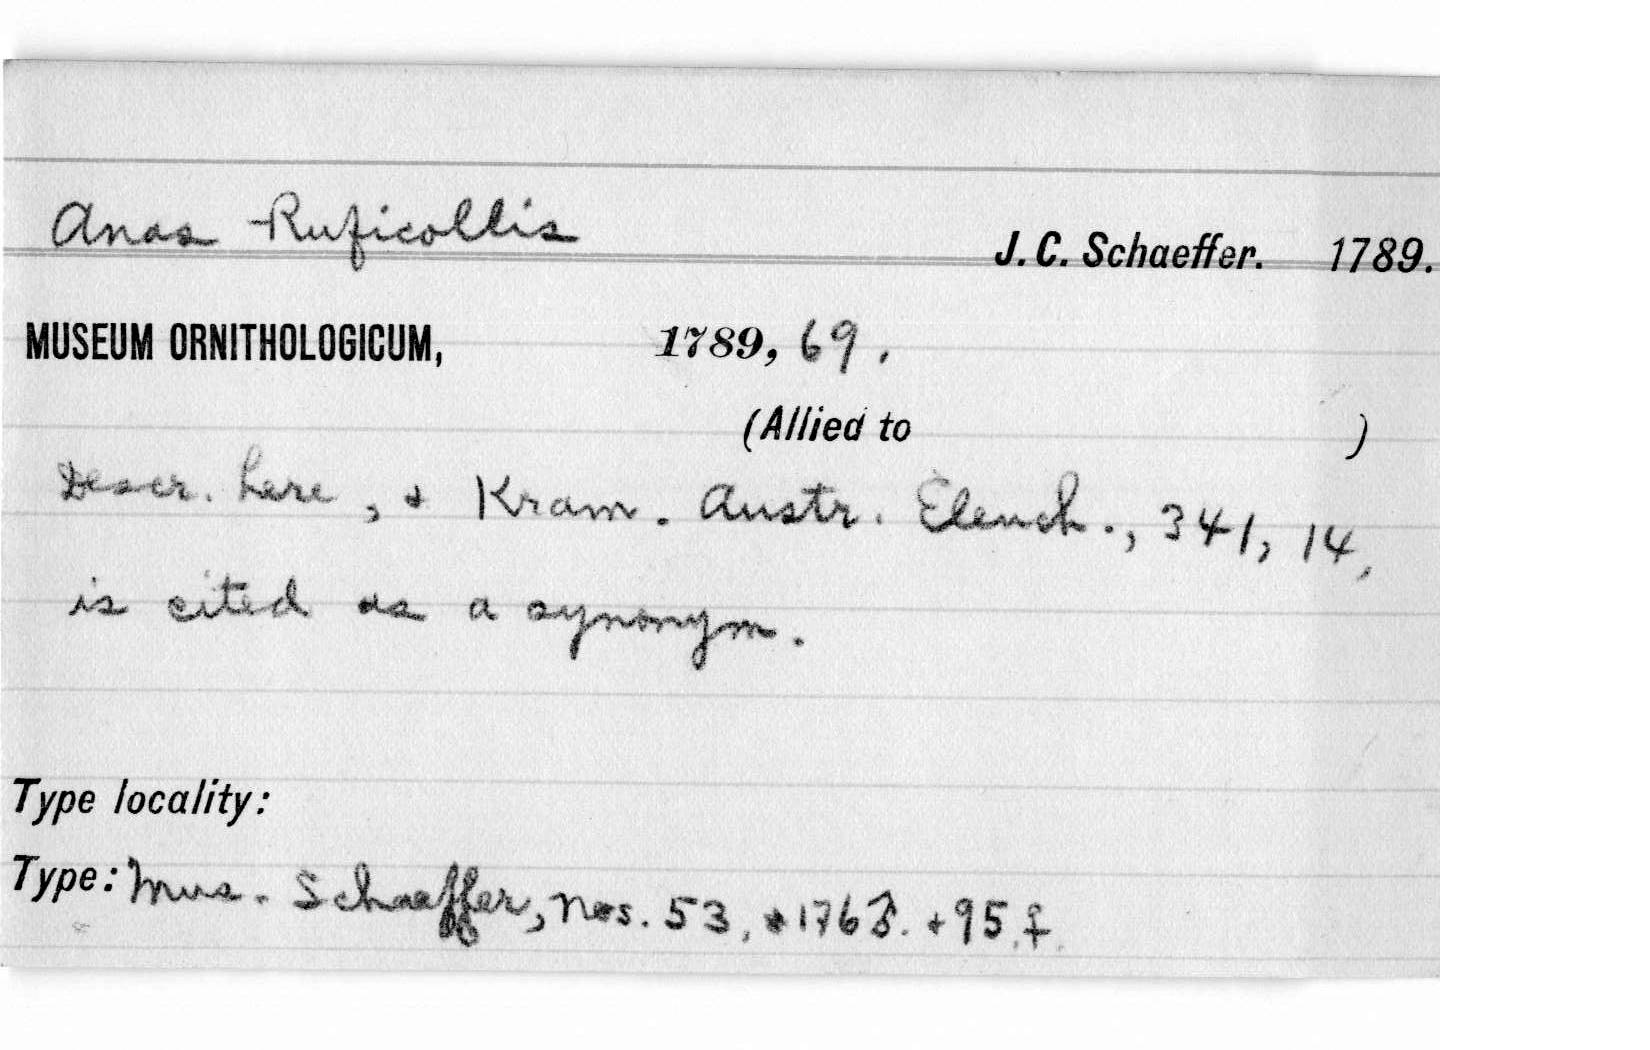 Anas Ruficollis J. C. Schaeffer. 1789.
MUSEUM ORNITHOLOGICUM, 1789, 69.
(Allied to )
Descr. here, + Kram. Austr. Elench., 341, 14,
is cited as a synonym.
Type locality:
Type: Mus. Schaeffer, Nos. 53, + 176 ♂. + 95 ♀.